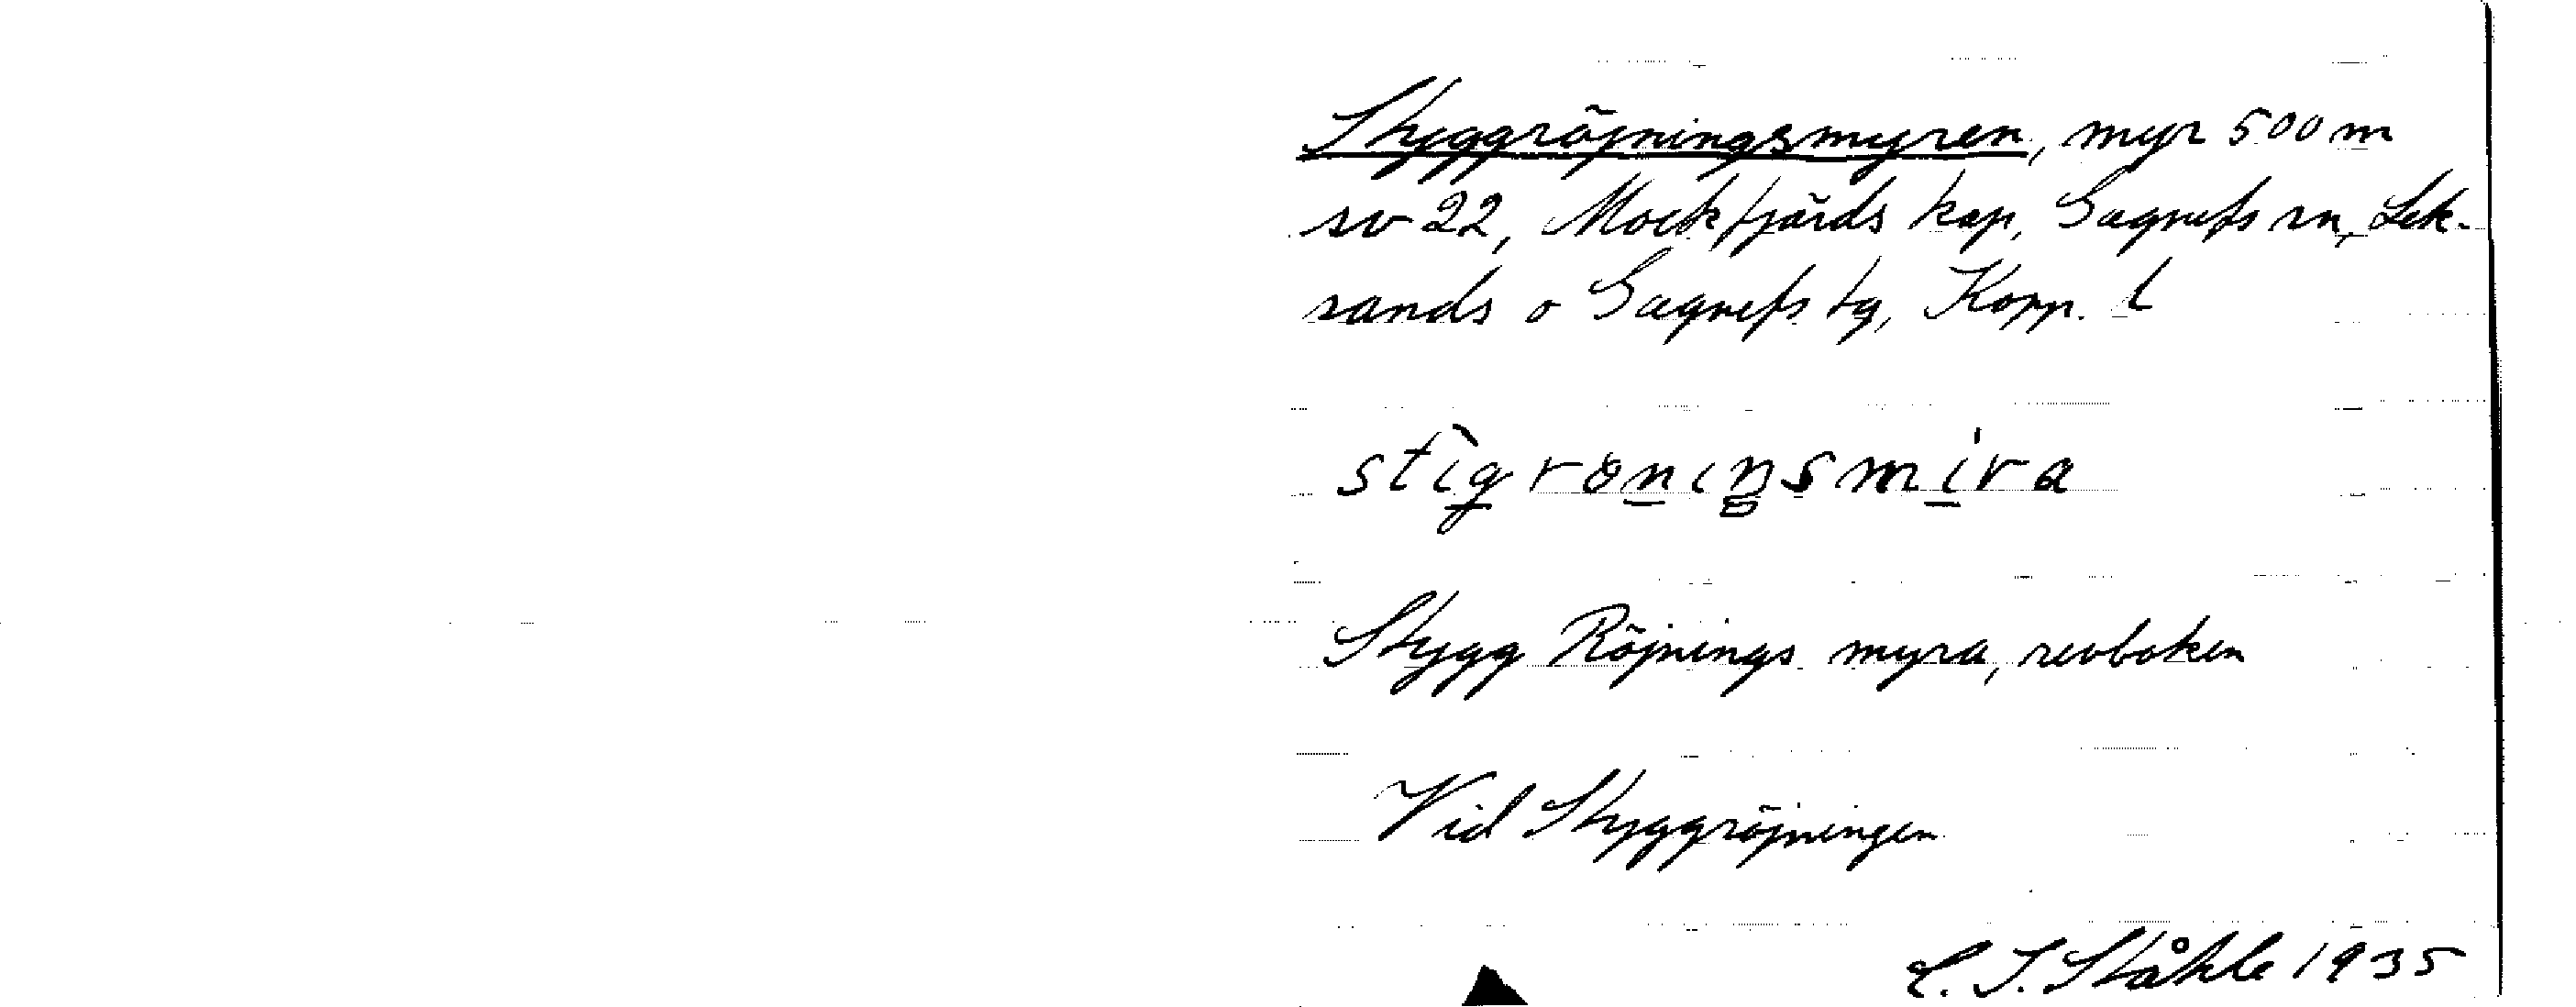 Styggröjningsmyren, myr 500 m
sv 22, Mockfjärds kap, Gagnefs sn, Lek-
sands o Gagnefs tg, Kopp. l
stigröningsmira
Stygg Röjnings myra, revboken
Vid Styggröjningen
C. I. Ståhle 1935